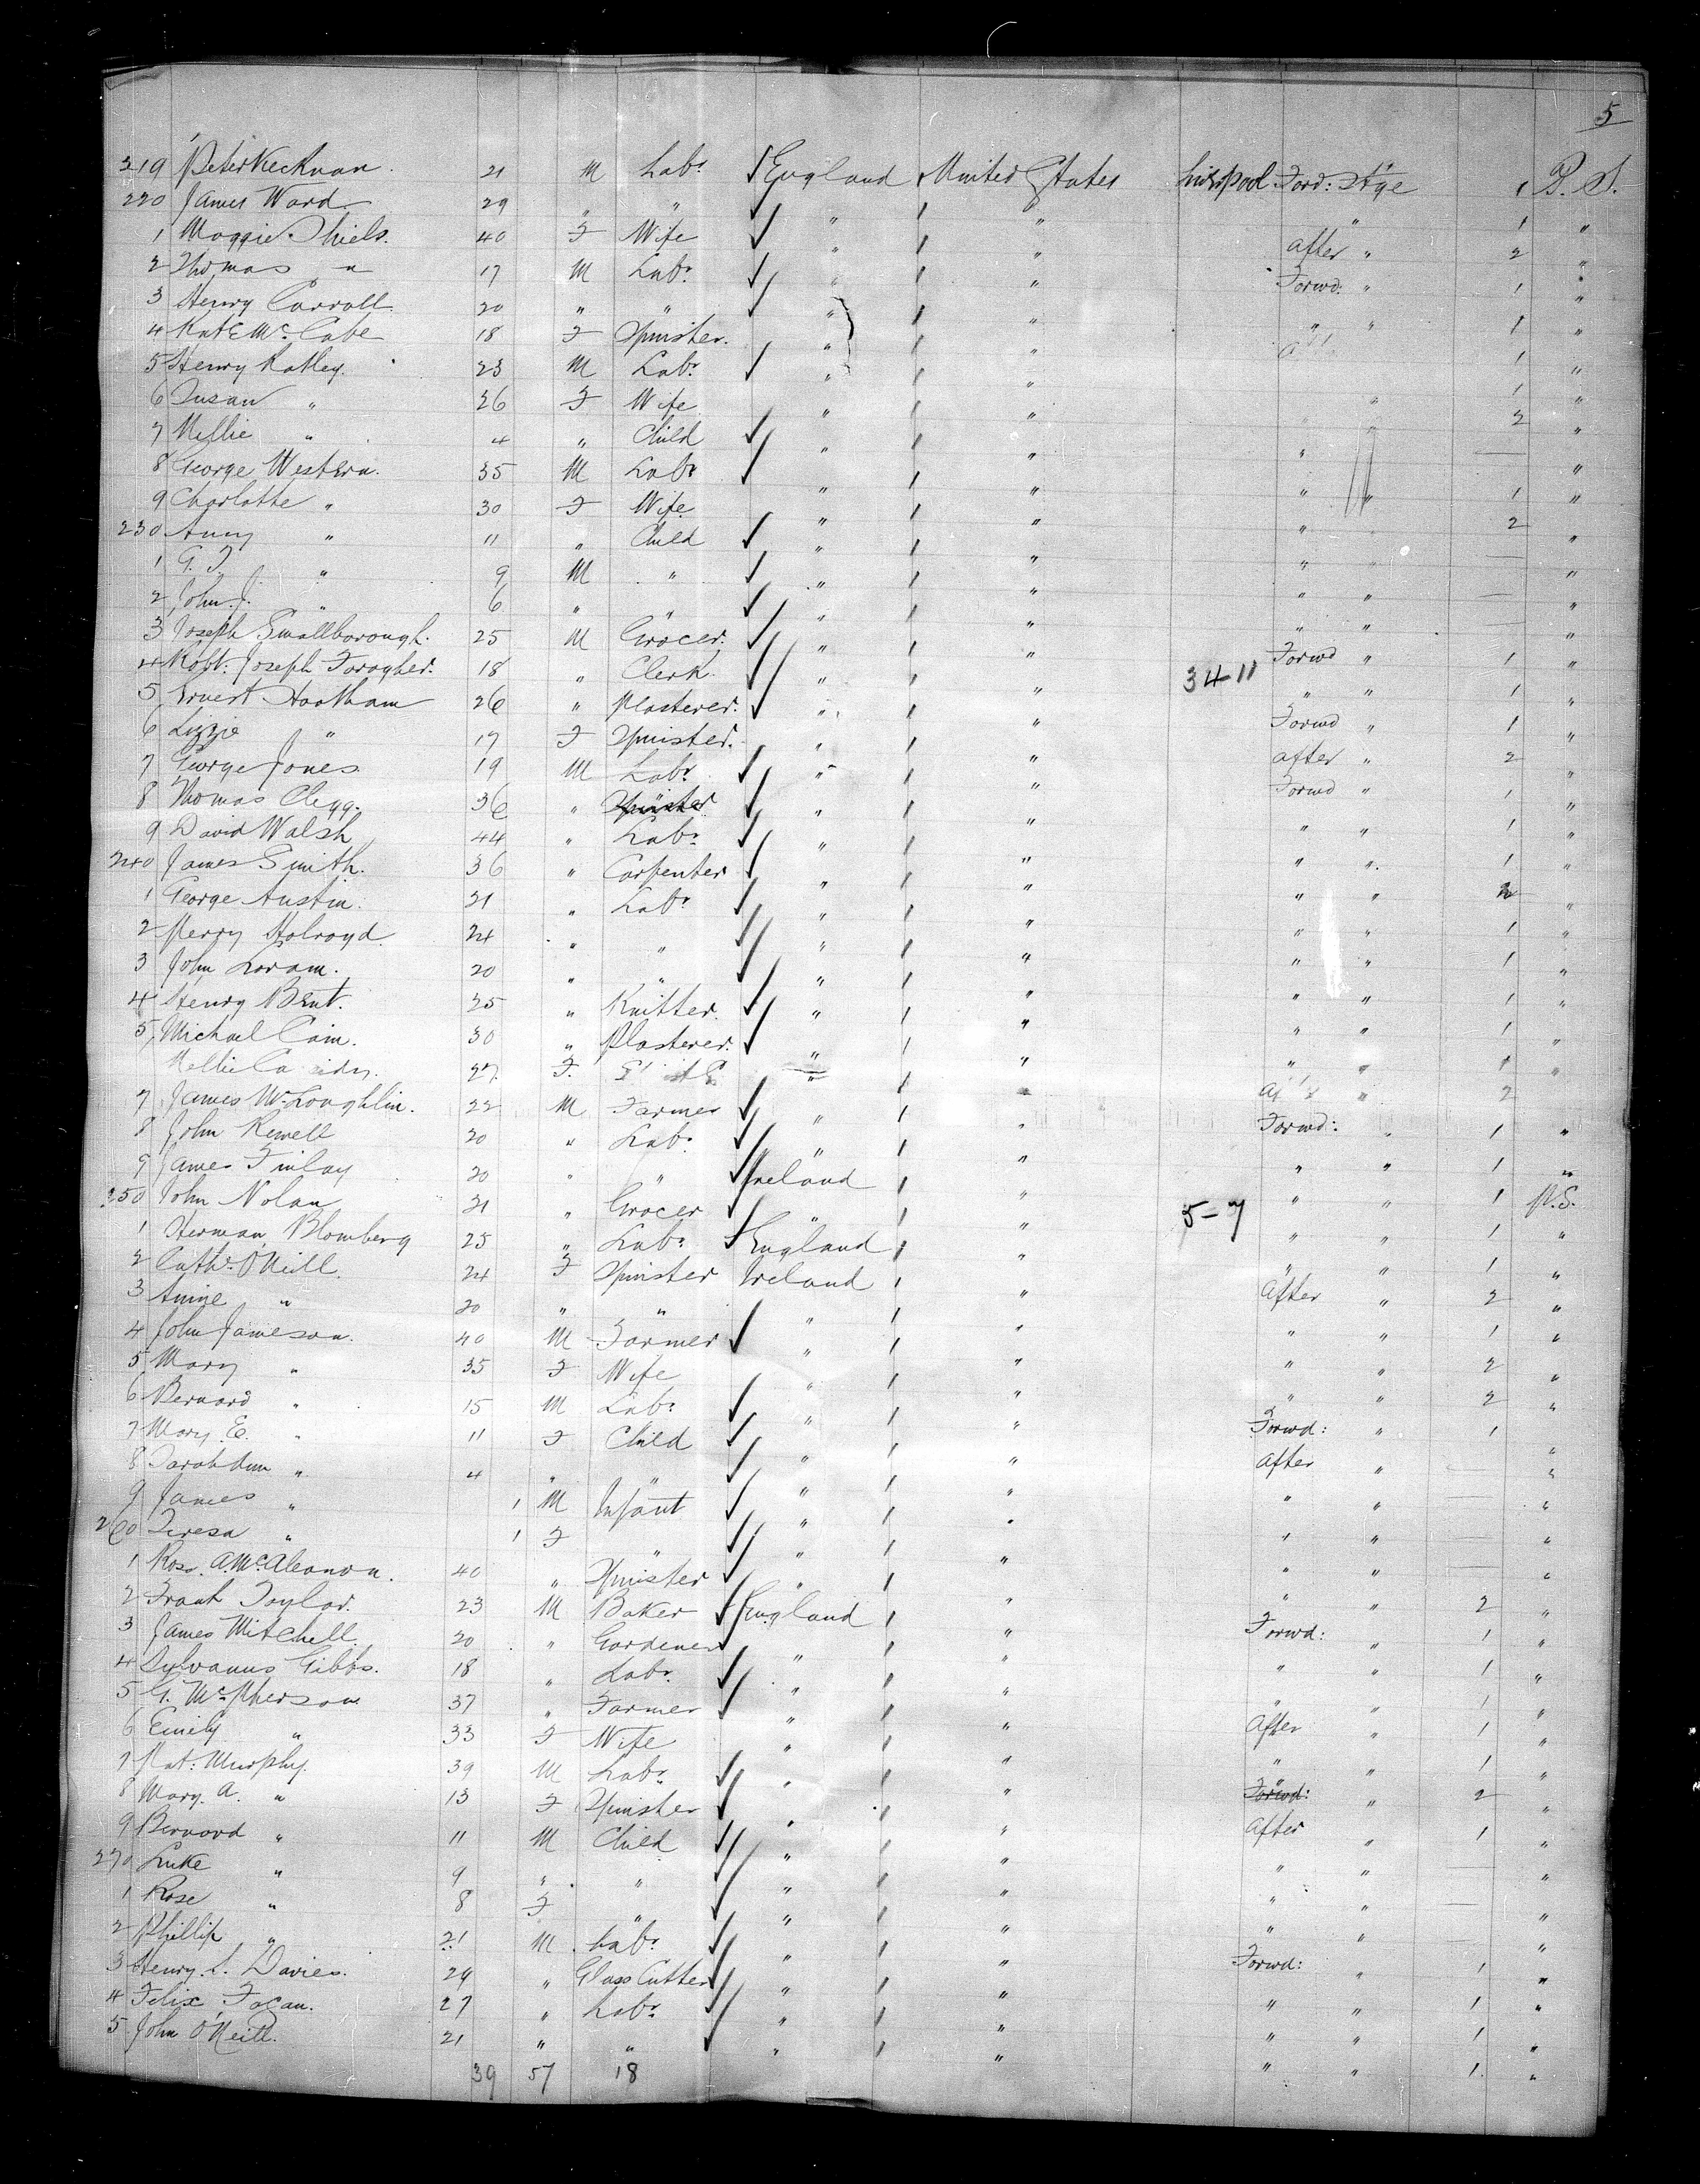 5
219 Peter Keeknan 21 M Labr England United States Liverpool Forw: Stge 1 P. S.
220 James Ward 29 " " " " " 1 "
1 Maggie Shiels. 40 F Wife " " after " 2 "
2 Thomas " 17 M Labr " " Forwd. " 1 "
3 Henry Carroll 20 " " " " " " 1 "
4 Kate McCabe 18 F Spinster. " " 1 "
5 Henry Katley. 23 M Labr " " 1 "
6 Susan " 26 F Wife " " " 2 "
7 Nellie " 4 " Child " " " — "
8 George Western. 35 M Labr " " " " 1 "
9 Charlotte " 30 F Wife " " " 2
230 Anny " 11 " Child " " " " — "
1 G. F. " 9 M " " " " " — "
2 John J. " 6 " " " " " " — "
3 Joseph Smallborough. 25 M Grocer. " " Forwd " 1 "
4 Robt. Joseph Faragher. 18 " Clerk " " 34-11 " " 1 "
5 Ernest Hootham 26 " Plasterer. " " Forwd " 1 "
6 Lizzie " 17 F Spinster. " " after " 2 "
7 George Jones 19 M Labr " " Forwd " 1 "
8 Thomas Clegg. 36 " Spinster " " " " 1 "
9 David Walsh 44 " Labr " " " " 1 "
240 James Smith. 36 " Carpenter " " " " 2 "
1 George Austin. 21 " Labr " " " " 1 "
2 Perry Holroyd. 24 " " " " " " 1 "
3 John Loram. 20 " " " " " " 1 "
4 Henry Bent. 25 " Knitter. " " " " 1 "
5 Michael Cain. 30 " Plasterer. " " " " 1 "
Nellie 27 F. " " " 2
7 James McLoughlin. 22 M Farmer " " Forwd: " 1 "
8 John Kewell 20 " Labr " " " " 1 "
9 James Finlay 20 " " Ireland " " " 1 P.S.
250 John Nolan 21 " Grocer " " 5-7 " " 1 "
1 Herman Blomberg 25 " Labr England " " " 1 "
2 Cathr O'Neill. 24 F Spinster Ireland " After " 2 "
3 Annie " 20 " " " " " " 1 "
4 John Jameson. 40 M Farmer " " " " 2 "
5 Mary " 35 F Wife " " " " 2 "
6 Bernard " 15 M Labr " " Forwd: " 1
7 Mary E. " 11 F Child " " After " — "
8 Sarah Ann " 4 " " " " " " — "
9 James " 1 M Infant " " " " — "
260 Teresa " 1 F " " " " " — "
1 Rose A. McAleanon. 40 " Spinster " " " " 2 "
2 Frank Taylor. 23 M Baker England " Forwd: " 1 "
3 James Mitchell. 20 " Gardener " " " " 1 "
4 Sylvanus Gibbs. 18 " Labr " " " " 1 "
5 G. McPherson 37 " Farmer " " After " 1 "
6 Emily " 33 F Wife " " " " 1 "
7 Pat: Murphy. 39 M Labr " " Forwd: " 2 "
8 Mary. A. " 13 F Spinster " " After " 1 "
9 Bernard " 11 M Child " " " " — "
270 Luke " 9 " " " " " " — "
1 Rose " 8 F " " " " " — "
2 Phillip " 21 M Labr " " Forwd: " 1 "
3 Henry. S. Davies. 29 " Glass Cutter " " " " 1 "
4 Felix Facan. 27 " Labr " " " " 1 "
5 John O'Neill. 21 " " " " " " 1 "
39 57 18